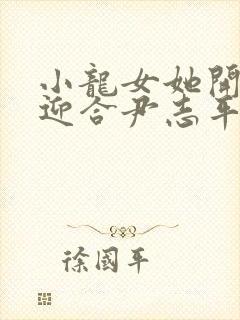 小龍女她開
迎合尹志平
徐國平